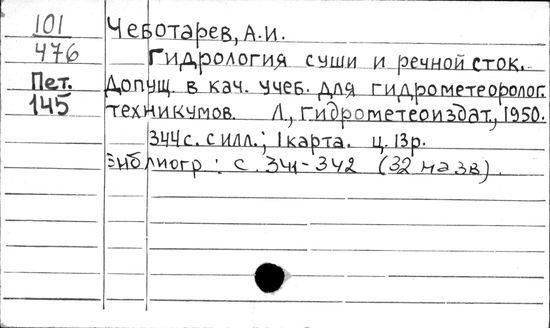 101
476
Пет.
145
Чеботарев, А.И.
Гидрология суши и речной сток.
Допущ. в кач. учеб. для гидрометеоролог.
техникумов. Л., Гидрометеоиздат, 1950.
344с. с илл.; 1 карта. ц. 13р.
Библиогр: с. 341-342 (32 назв).